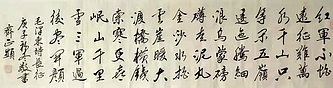 紅軍不怕
遠征難萬
水千山只
等閑五嶺
逶迤騰細
浪烏蒙磅
礴走泥丸
金沙水拍
雲崖暖大
渡橋橫鐵
索寒更喜
岷山千里
雪三軍過
後盡開顏
毛澤東詩長征
庚子冬敬書
齊正